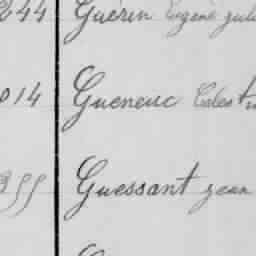 244 Guérin Eugène jul
014 Gueneuc Celest
355 Guessant jean